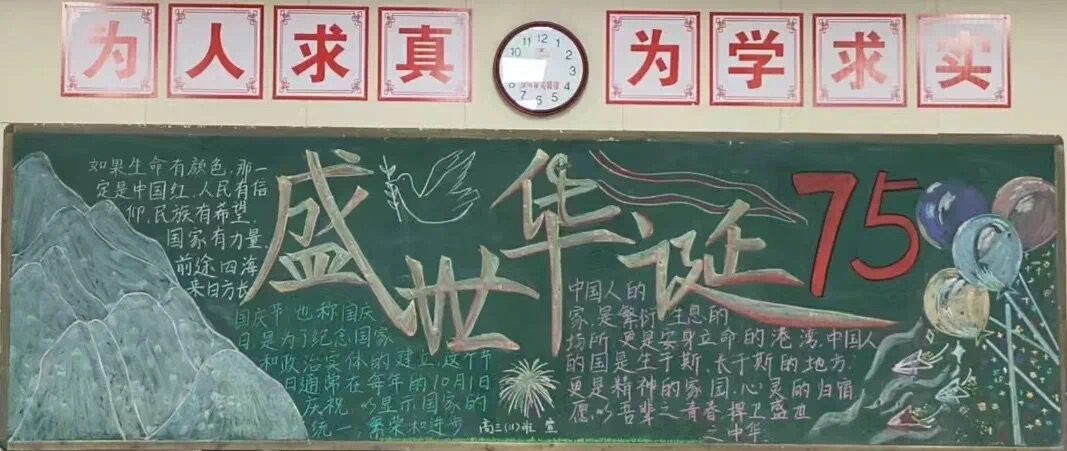 为人求真
为学求实
12
11
1
10
2
3
4
8
7
6
5
盛世华诞
75
如果生命有颜色,那一
定是中国红,人民有信
仰,民族有希望,
国家有力量,
前途四海
来日方长
国庆节也称国庆
日是为了纪念国家
和政治实体的建立,这个节
日通常在每年的10月1日
庆祝,以显示国家的
统一、繁荣和进步
高三(11)班 宣
中国人的
家,是繁衍生息的
场所,更是安身立命的港湾,中国人
的国是生于斯,长于斯的地方
更是精神的家园,心灵的归宿
愿以吾辈之青春捍卫盛世
之中华.